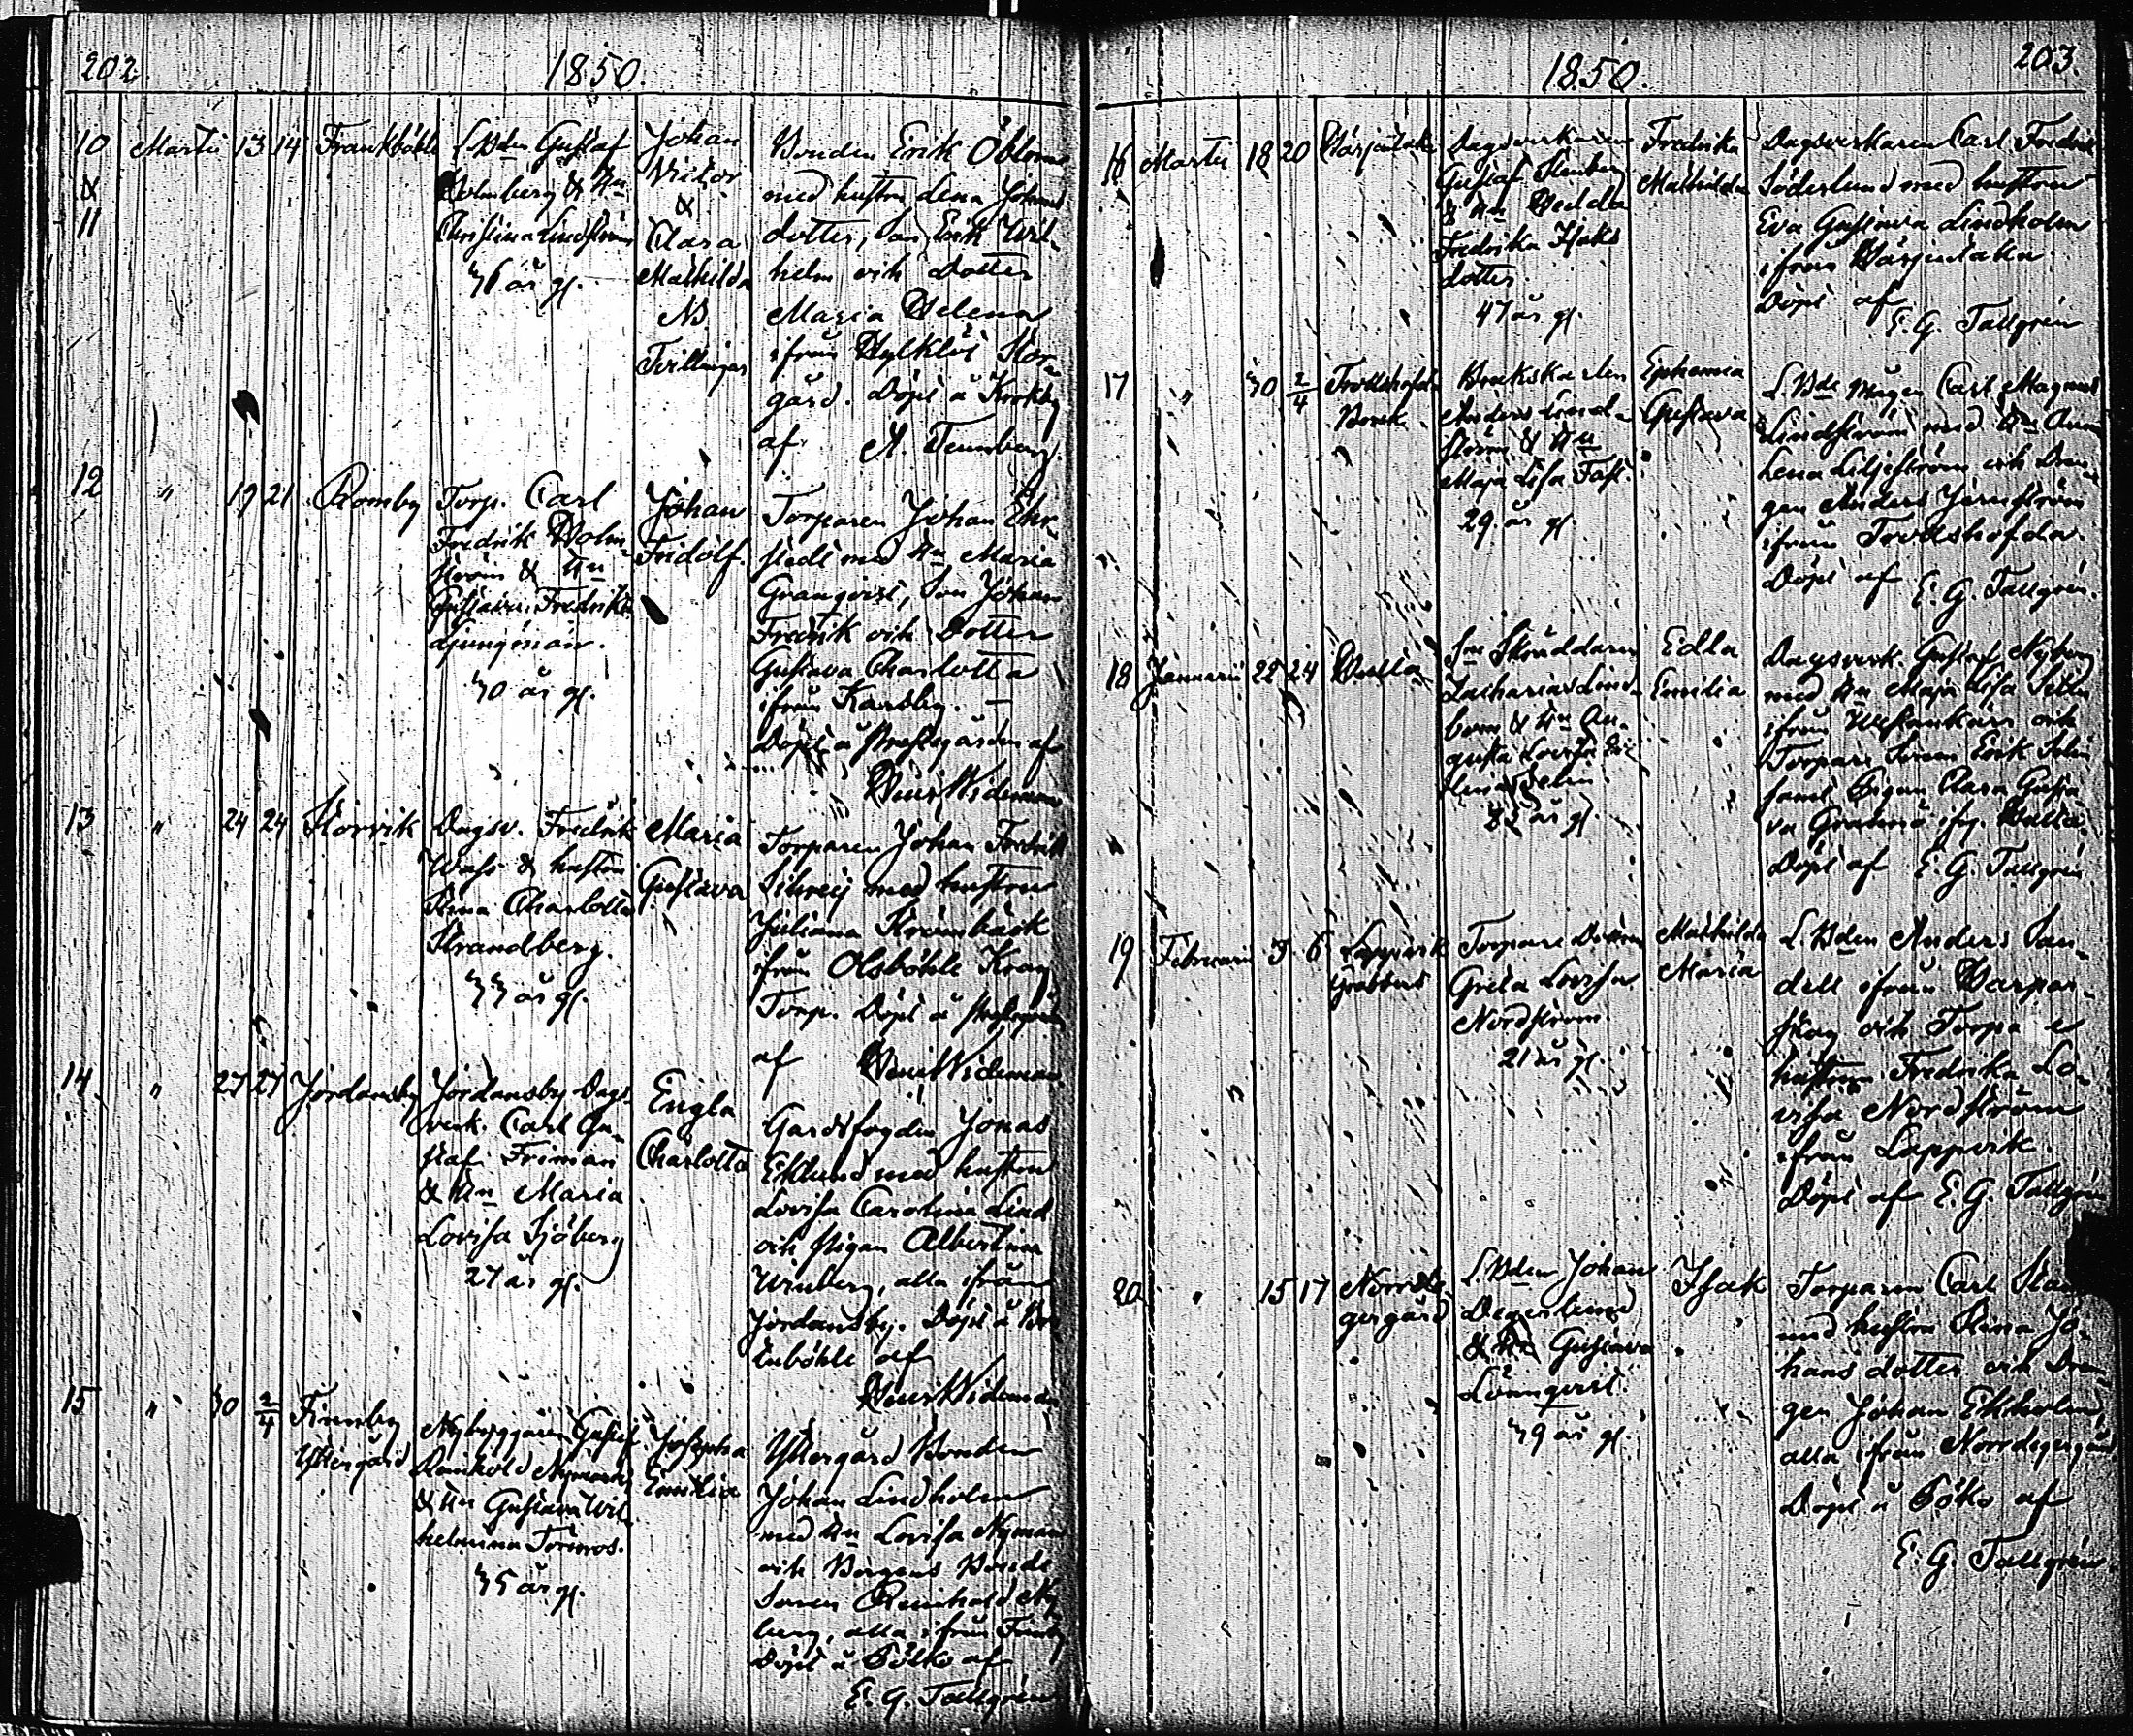 202.
1850
10 Martii 13 14 Frankböhle L.Bden Gustaf
& Holmberg & Hu
11 Christina Lindström
36 år gl.
Johan
Victor
&
Clara
Mathilda
NB
Tvillingar
Bonden Erik Öblom
med hustru Lena Johans
dotter, Son Erik Wil-
helm och Dotter
Maria Helena
ifrån Stor-
gård. Döpt å Krokby
af A. Tennberg
12 " 19 21 Romby Torp. Carl
Fredrik Holm-
ström & Hu
Gustava Fredrika
Ljungman.
30 år gl.
Johan
Fridolf.
Torparen Johan Ehr-
stedt med Hu Maria
Granqvist, Son Johan
Fredrik och Dotter
Gustava Charlotta
ifrån Karsby. —
Döpt å Prestegården af
Wideman
13 " 24 24 Storvik Dagsv. Fredrik
Wass & hustru
Stina Charlotta
Strandberg.
33 år gl.
Maria
Gustava
Torparen Johan Fredrik
med hustru
Juliana Strömbäck
ifrån Olsböhle Krog
Torp. Döpt å
af Wideman.
14 " 27 27 Jordansby Jordansby Dags-
verk. Carl Gu-
staf Friman
& Hu Maria
Lovisa Sjöberg
27 år gl.
Engla
Charlotta
Gardsfogden Jonas
Eklund med hustru
Lovisa Carolina Lind
och Pigan Albertina
Winberg, alla ifrån
Jordansby. Döpt å
af
Wideman
15 " 30 2/4 Finnby
Yttergård
Nybyggaren Gustaf
Reinhold Nyman
& Hu Gustava Wil-
helmina Törnros.
35 år gl.
Josepha
Emilia
Yttergård Bonden
Johan Lindholm
med Hu Lovisa Nyman
och Bonde
Sonen Reinhold Ny-
berg, alla ifrån Finnby
Döpt å Böle af
E. G. Tallgrén
203.
1850.
16 Martii 18 20 Dagsverkaren
Gustaf Stenberg
& Hu Hedda
Fredrika Isaks
dotter.
47 år gl.
Fredrika
Mathilda
Dagsverkaren Carl Fredrik
Söderlund med hustru
Eva Gustava Lindholm
ifrån
Döpt af
E. G. Tallgrén
17 " 30 2/4 Trollshofda
Bruk
Brukskarlen
Anders Lind-
ström & Hu
Maja Lisa Fast.
29 år gl.
Ephemia
Gustava
L.Bde Mågen Carl Magnus
Lindström med Hu Anna
Lena Liljeström och Dren-
gen Anders Jernström
ifrån Trollshofda.
Döpt af E. G. Tallgrén.
18 Januarii 22 24 Skräddaren
Zacharias Lind-
bom & Hu Au-
gusta Lovisa
32 år gl.
Edla
Emilia
Dagsverk. Gustaf Nyberg
med Hu Maja Lisa
ifrån Westankärr och
Torpare Sonen Erik
samt Pigan Clara Gusta-
va
Döpt af E. G. Tallgrén
19 Februarii 3 6 Lappvik
Torpare Dottren
Greta Lovisa
Nordström
21 år gl.
Mathilda
Maria
L.Bden Anders San-
dell ifrån Harpar-
skog och Torpare
hustrun Fredrika Lo-
visa Nordström
ifrån Lappvik.
Döpt af E. G. Tallgrén
20 " 15 17 Norrde-
gergård
L.Bden Johan
Degerlund
& Hu Gustava
Lönnqvist.
39 år gl.
Isak
Torparen Carl
med hustru Stina Jo-
hans dotter och Dren-
gen Johan Ekholm,
alla ifrån Norrdegergård
Döpt å af
E. G. Tallgrén.